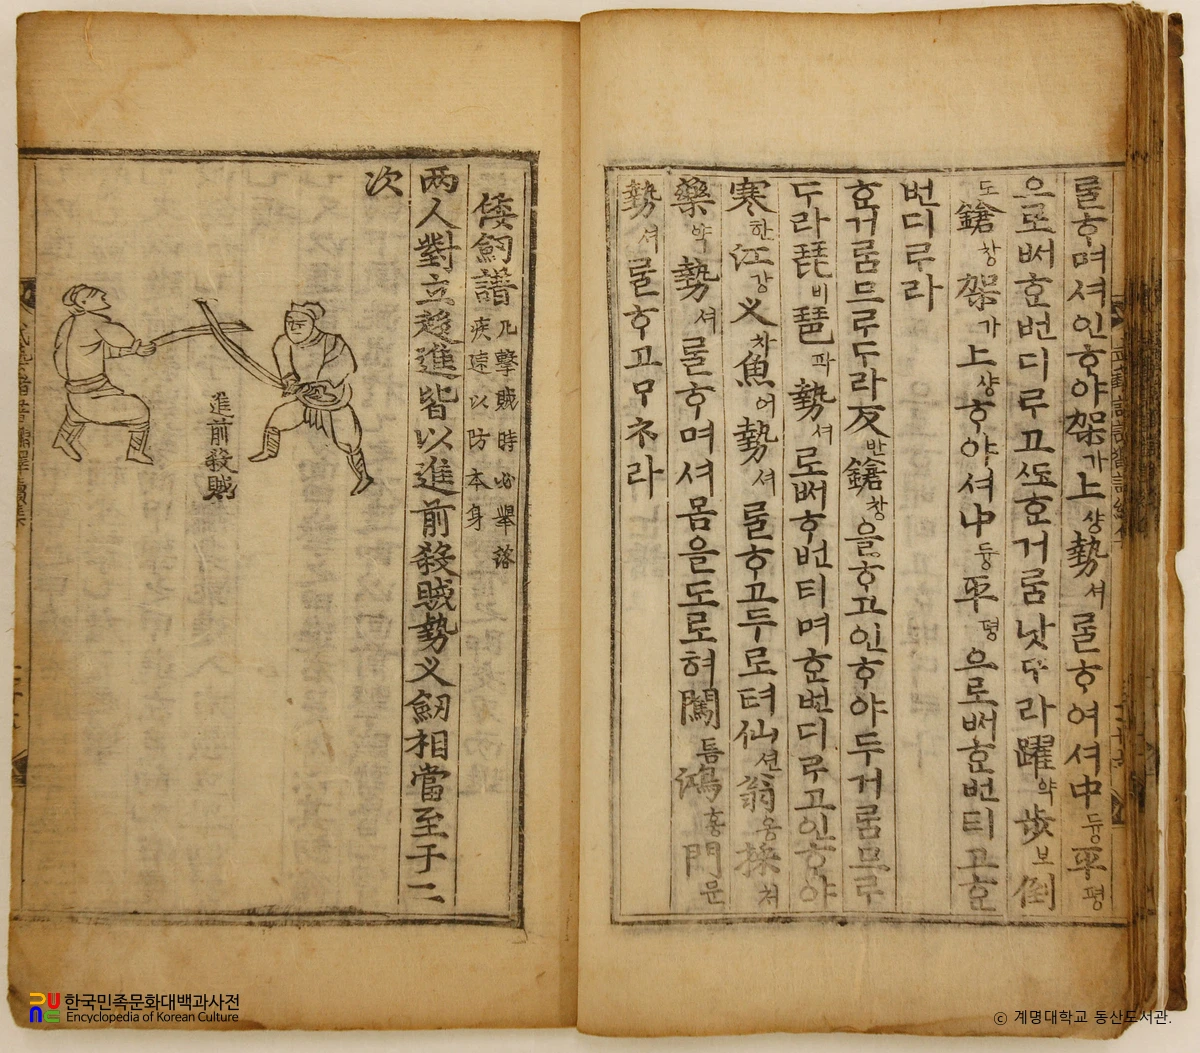 룰ᄒᆞ며셔인ᄒᆞ야架가上샹勢셔룰ᄒᆞ여셔中듕平평
으로ᄡᅥᄒᆞᆫ번디ᄅᆞ고ᄯᅩᄒᆞᆫ거룸낫ᄃᆞ라躍약步보倒
도鎗창架가上샹ᄒᆞ야셔中듕平평으로ᄡᅥᄒᆞᆫ번티고ᄒᆞᆫ
번디ᄅᆞ라
ᄒᆞᆫ거룸므ᄅᆞ두라反반鎗창을ᄒᆞ고인ᄒᆞ야두거룸므ᄅᆞ
두라琵비琶파勢셔로ᄡᅥᄒᆞᆫ번티며ᄒᆞᆫ번디ᄅᆞ고인ᄒᆞ야
寒한江강叉차魚어勢셔룰ᄒᆞ고두로텨仙션翁옹採
藥약勢셔룰ᄒᆞ며셔몸을도로혀闖틈鴻홍門문
勢셔룰ᄒᆞ고ᄆᆞᄎᆞ라
倭劒譜
凡擊賊時必擧落
疾速以防本身
两人對立趍進皆以進前殺賊勢义劒相當至于二
次
進前殺賊
한국민족문화대백과사전
Encyclopedia of Korean Culture
ⓒ 계명대학교 동산도서관.